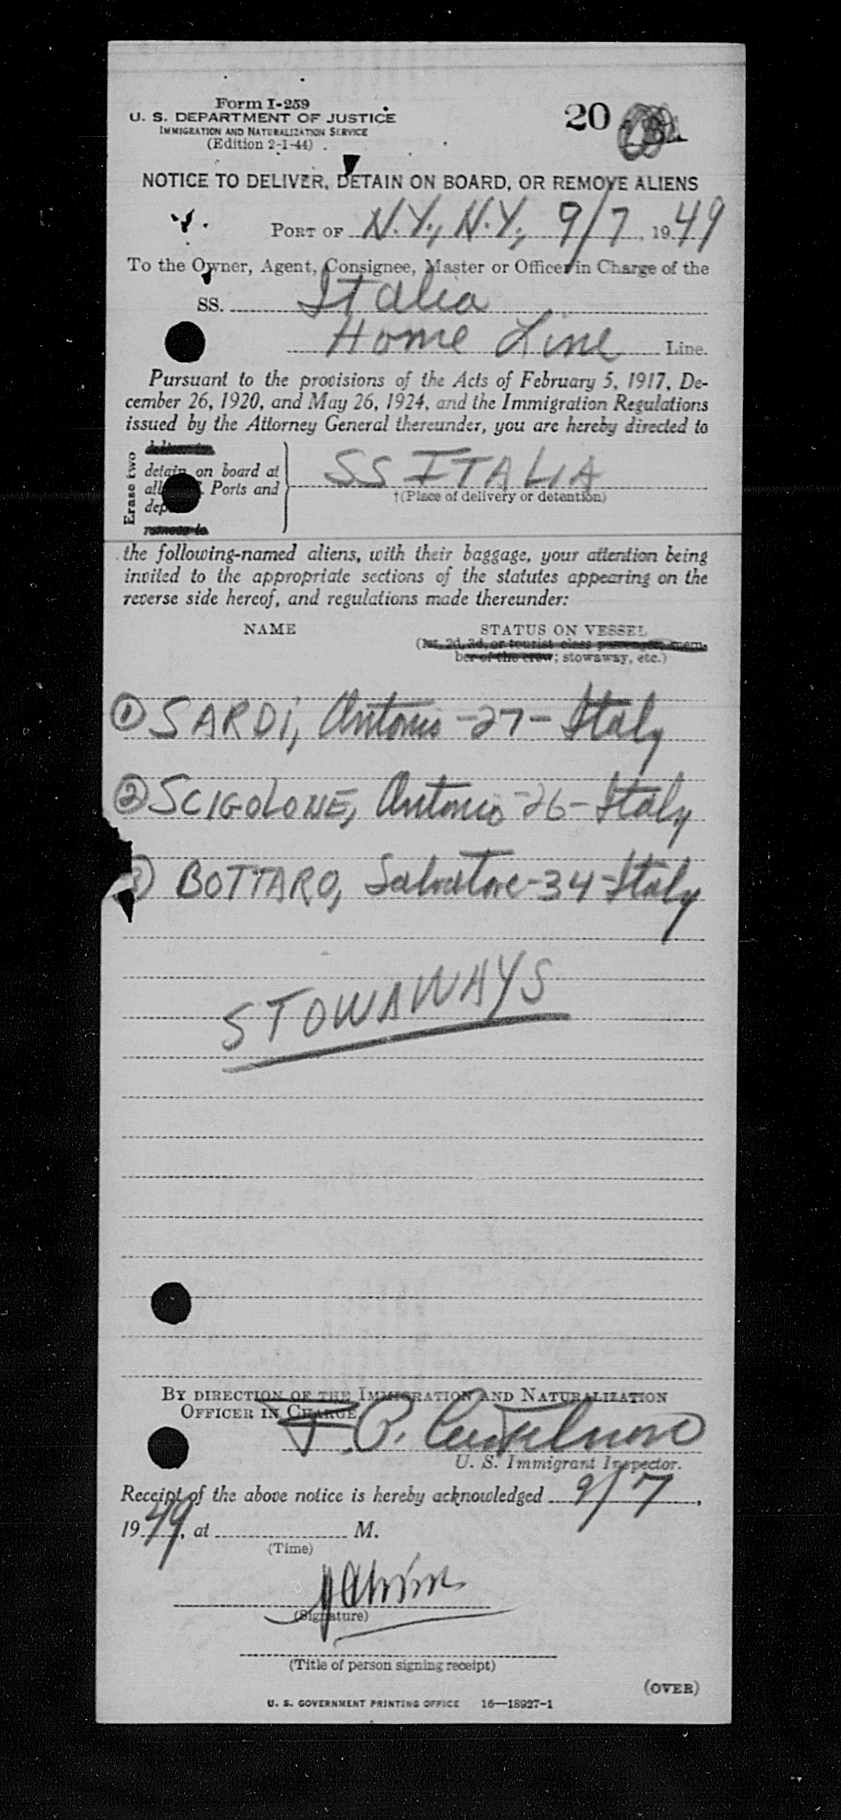 Form I-259
U. S. DEPARTMENT OF JUSTICE
IMMIGRATION AND NATURALIZATION SERVICE
(Edition 2-1-44)
20
NOTICE TO DELIVER, DETAIN ON BOARD, OR REMOVE ALIENS
PORT OF N.Y., N.Y., 9/7, 1949
To the Owner, Agent, Consignee, Master or Officer in Charge of the
SS. Italia
Home Line Line.
Pursuant to the provisions of the Acts of February 5, 1917, De-
cember 26, 1920, and May 26, 1924, and the Immigration Regulations
issued by the Attorney General thereunder, you are hereby directed to
Erase two
deliver to
detain on board at
all Ports and
remove to
SS ITALIA
†(Place of delivery or detention)
the following-named aliens, with their baggage, your attention being
invited to the appropriate sections of the statutes appearing on the
reverse side hereof, and regulations made thereunder:
NAME STATUS ON VESSEL
(1st, 2d, 3d, or tourist class passenger, mem-
ber of the crew; stowaway, etc.)
① SARDI, Antonio - 27 - Italy
② SCIGOLONE, Antonio - 26 - Italy
③ BOTTARO, Salvatore - 34 - Italy
STOWAWAYS
BY DIRECTION OF THE IMMIGRATION AND NATURALIZATION
OFFICER IN CHARGE
U. S. Immigrant Inspector.
Receipt of the above notice is hereby acknowledged 9/7,
1949, at M.
(Time)
(Signature)
(Title of person signing receipt)
(OVER)
U. S. GOVERNMENT PRINTING OFFICE 16—18927-1